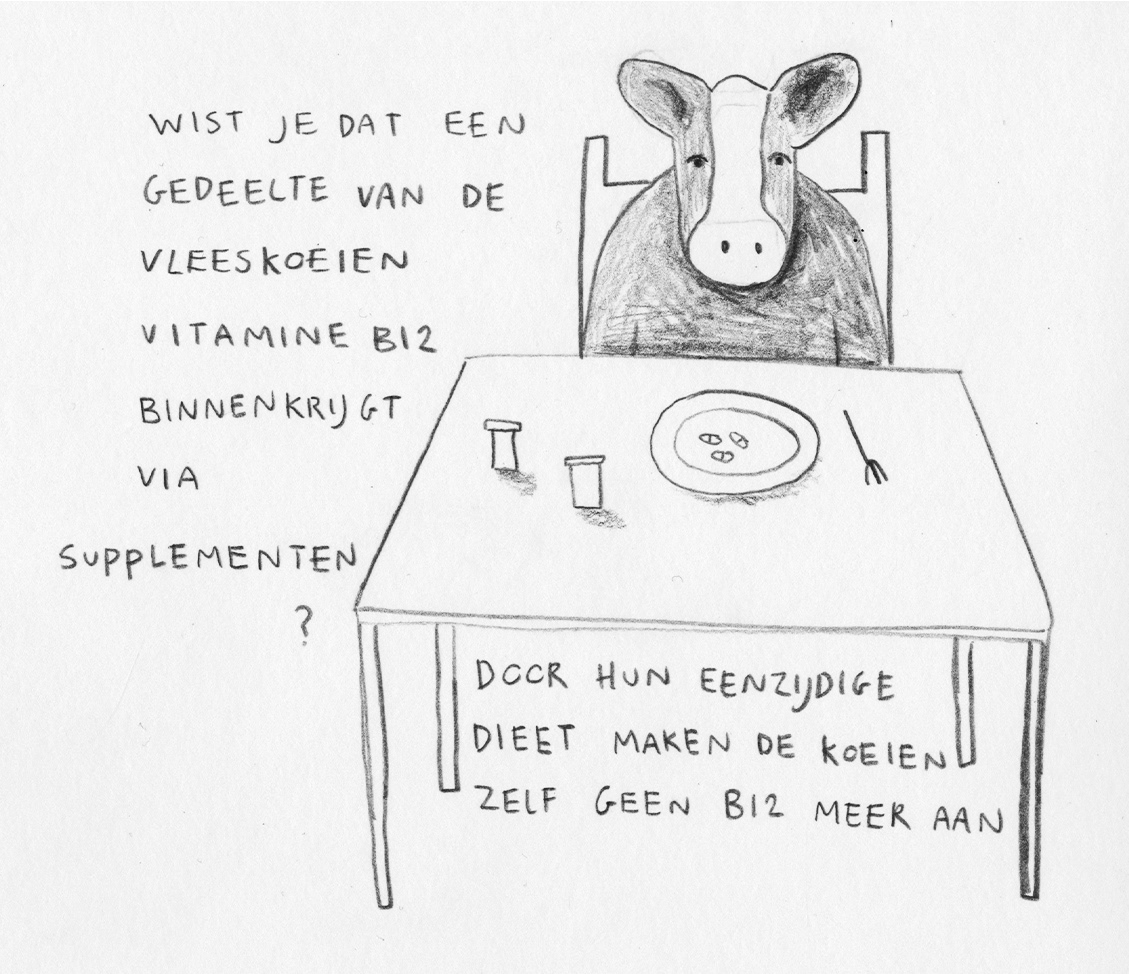 WIST JE DAT EEN
GEDEELTE VAN DE
VLEESKOEIEN
VITAMINE B12
BINNENKRIJGT
VIA
SUPPLEMENTEN
?
DOOR HUN EENZIJDIGE
DIEET MAKEN DE KOEIEN
ZELF GEEN B12 MEER AAN